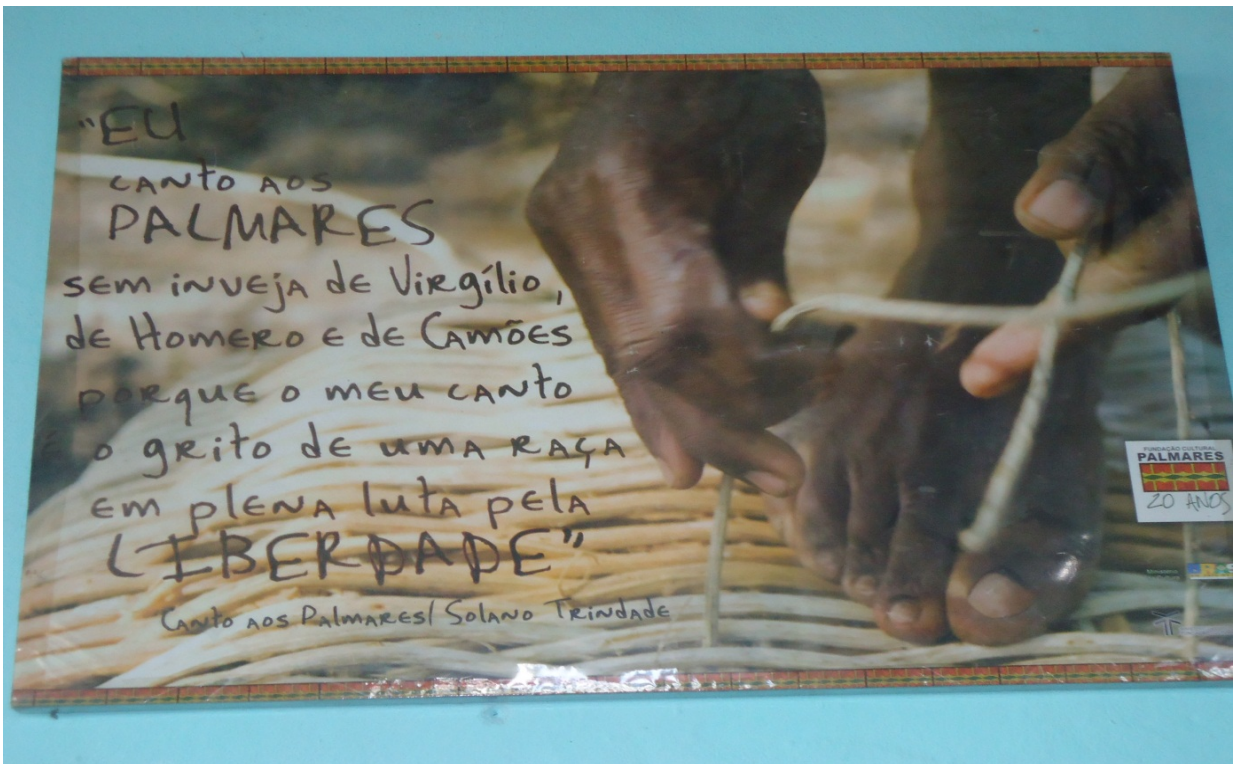 "EU
CANTO AOS
PALMARES
SEM INVEJA DE VIRGÍLIO,
DE HOMERO E DE CAMÕES
PORQUE O MEU CANTO
O GRITO DE UMA RAÇA
EM PLENA LUTA PELA
LIBERDADE"
CANTO AOS PALMARES/ SOLANO TRINDADE
FUNDAÇÃO CULTURAL
PALMARES
20 ANOS